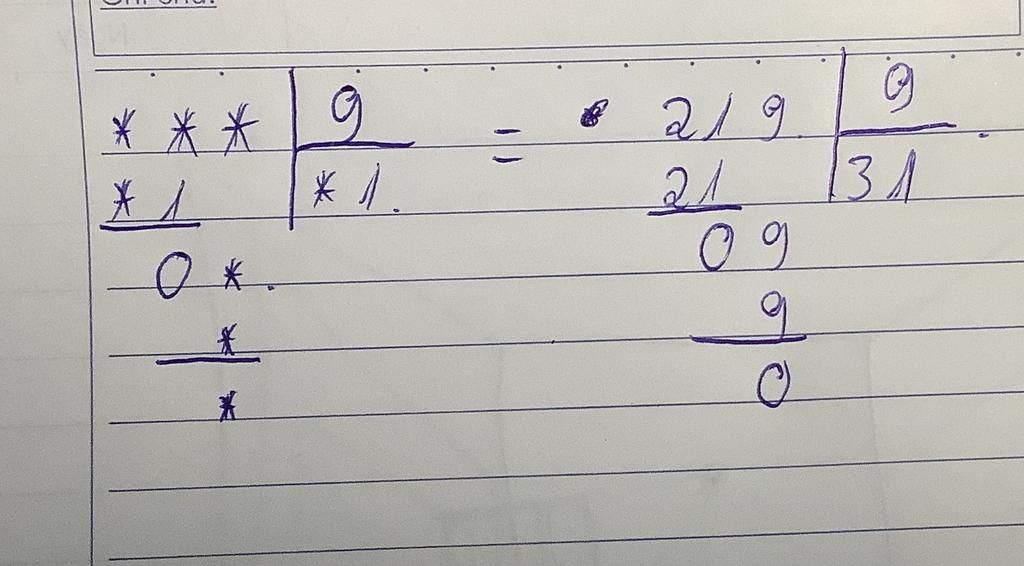 * * * 9 = 219 9
* 1 * 1. 21 31
0 *. 09
* 9
* 0